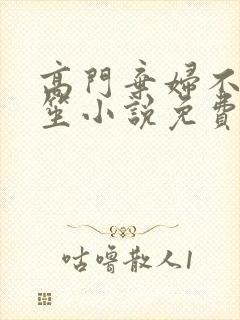 高門棄婦不
笙小說免費
咕嚕散人1